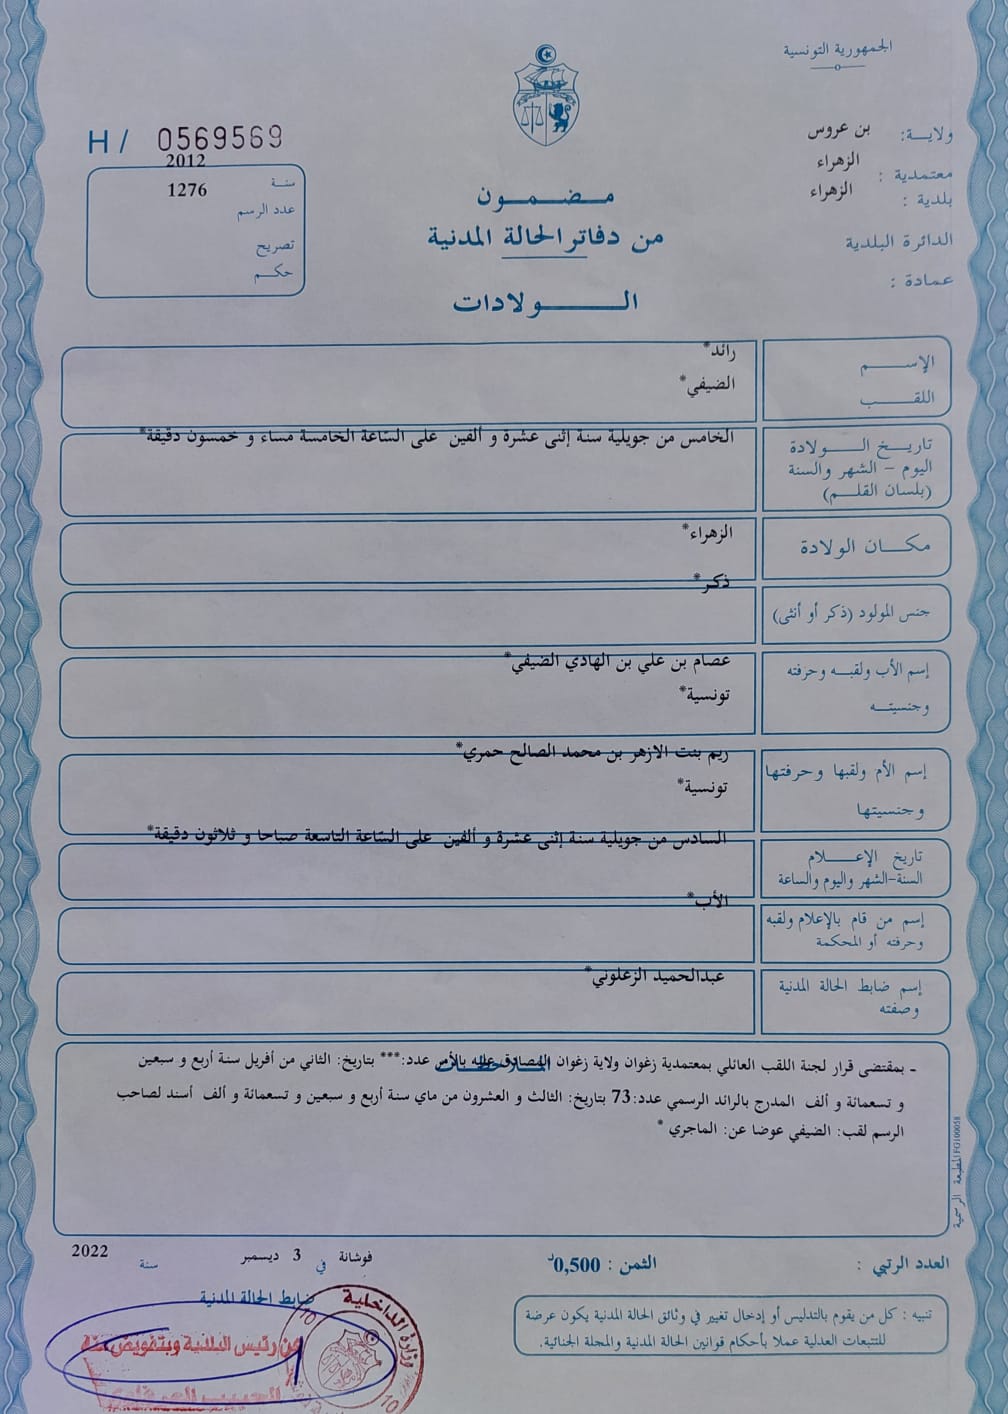 الجمهورية التونسية
ولاية: بن عروس
معتمدية : الزهراء
بلدية : الزهراء
الدائرة البلدية
عمادة :
H / 0569569
سنة 2012
عدد الرسم 1276
تصريح
حكم
مضمون
من دفاتر الحالة المدنية
الولادات
الإسم رائد*
اللقب الضيفي*
تاريخ الولادة الخامس من جويلية سنة إثنى عشرة و ألفين على السّاعة الخامسة مساء و خمسون دقيقة*
اليوم - الشهر والسنة
(بلسان القلم)
مكان الولادة الزهراء*
جنس المولود (ذكر أو أنثى) ذكر*
إسم الأب ولقبه وحرفته عصام بن علي بن الهادي الضيفي*
وجنسيته تونسية*
إسم الأم ولقبها وحرفتها ريم بنت الازهر بن محمد الصالح حمري*
وجنسيتها تونسية*
تاريخ الإعلام السادس من جويلية سنة إثنى عشرة و ألفين على السّاعة التاسعة صباحا و ثلاثون دقيقة*
السنة-الشهر واليوم والساعة
إسم من قام بالإعلام ولقبه الأب*
وحرفته أو المحكمة
إسم ضابط الحالة المدنية عبدالحميد الزعلوني*
وصفته
- بمقتضى قرار لجنة اللقب العائلي بمعتمدية زغوان ولاية زغوان المصادق عليه بالأمر عدد:*** بتاريخ: الثاني من أفريل سنة أربع و سبعين
و تسعمائة و ألف المدرج بالرائد الرسمي عدد:73 بتاريخ: الثالث و العشرون من ماي سنة أربع و سبعين و تسعمائة و ألف أسند لصاحب
الرسم لقب: الضيفي عوضا عن: الماجري *
المطبعة الرسمية FG100058
العدد الرتبي :
الثمن : 0,500د
فوشانة في 3 ديسمبر سنة 2022
ضابط الحالة المدنية
تنبيه : كل من يقوم بالتدليس أو إدخال تغيير في وثائق الحالة المدنية يكون عرضة
للتتبعات العدلية عملا بأحكام قوانين الحالة المدنية والمجلة الجنائية.
وزارة الداخلية
عن رئيس البلدية وبتفويض منه